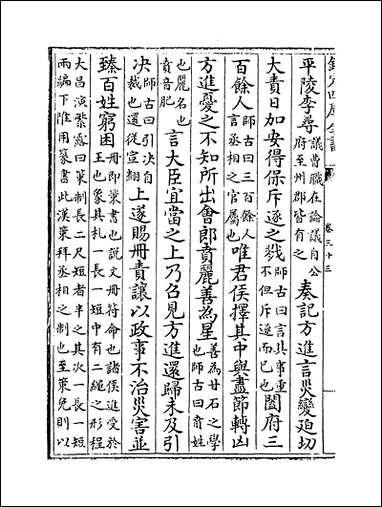 欽定四庫全書 卷三十三
平陵李尋議曹職在論議自公府至州郡皆有之奏記方進言災變迫切
大責日加安得保斥逐之戮師古曰言其事重不但斥逐而已也闔府三
百餘人師古曰三百餘人言丞相之官屬也唯君侯擇其中與盡節轉凶
方進憂之不知所出會郎賁麗善為星善為甘石之學也師古曰賁姓
也麗名也賁音肥言大臣宜當之上乃召見方進還歸未及引
决師古曰引决自裁也還從宣翻上遂賜册責讓以政事不治災害並
臻百姓窮困册即策書也說文册符命也諸侯進受於王也象其札一長一短中有二繩之形程
大昌演繁露曰策制長二尺短者半之其次一長一短兩編下附用篆書此漢策拜丞相之制也至策免則以